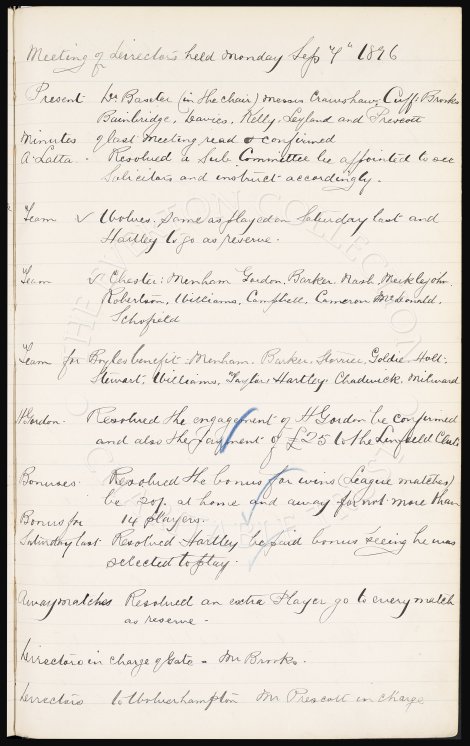 Meeting of Directors held Monday Sep "7" 1896
Present Dr Baxter (in the chair) Messrs Crawshaw, Cuff, Brooks
Bainbridge, Davies, Kelly, Leyland and Prescott
Minutes of last Meeting read & confirmed
A. Latta. Resolved a Sub. Committee be appointed to see
Solicitors and instruct accordingly.
Team v Wolves. Same as played on Saturday last and
Hartley to go as reserve.
Team v Chester: Menham Gordon, Barker, Nash, Meiklejohn
Robertson, Williams, Campbell, Cameron McDonald,
Schofield
Team for Boyles benefit. Menham, Barker, Storrier, Goldie, Holt.
Stewart, Williams, Taylor, Hartley, Chadwick, Milward
H Gordon. Resolved the engagement of H Gordon be confirmed
and also the payment of £25 to the Linfield Club
Bonuses Resolved the bonus for wins (League matches)
be 20/. at home and away for not more than
14 players.
Bonus for
Saturday last Resolved Hartley be paid bonus seeing he was
selected to play.
Away matches Resolved an extra Player go to every match
as reserve.
Directors in charge of Gate - Mr Brooks.
Directors to Wolverhampton Mr Prescott in charge
THE EVERTON COLLECTION